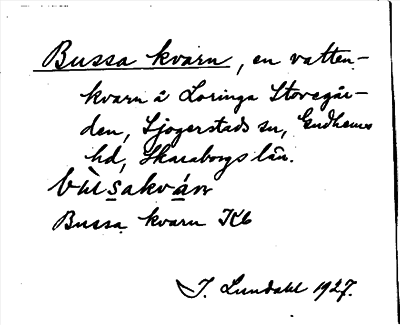 Bussa kvarn, en vatten-
kvarn å Loringa Storegår-
den, Sjogerstads sn, Gudhems
hd, Skaraborgs län.
Bussa kvarn Kb
I. Lundahl 1927.